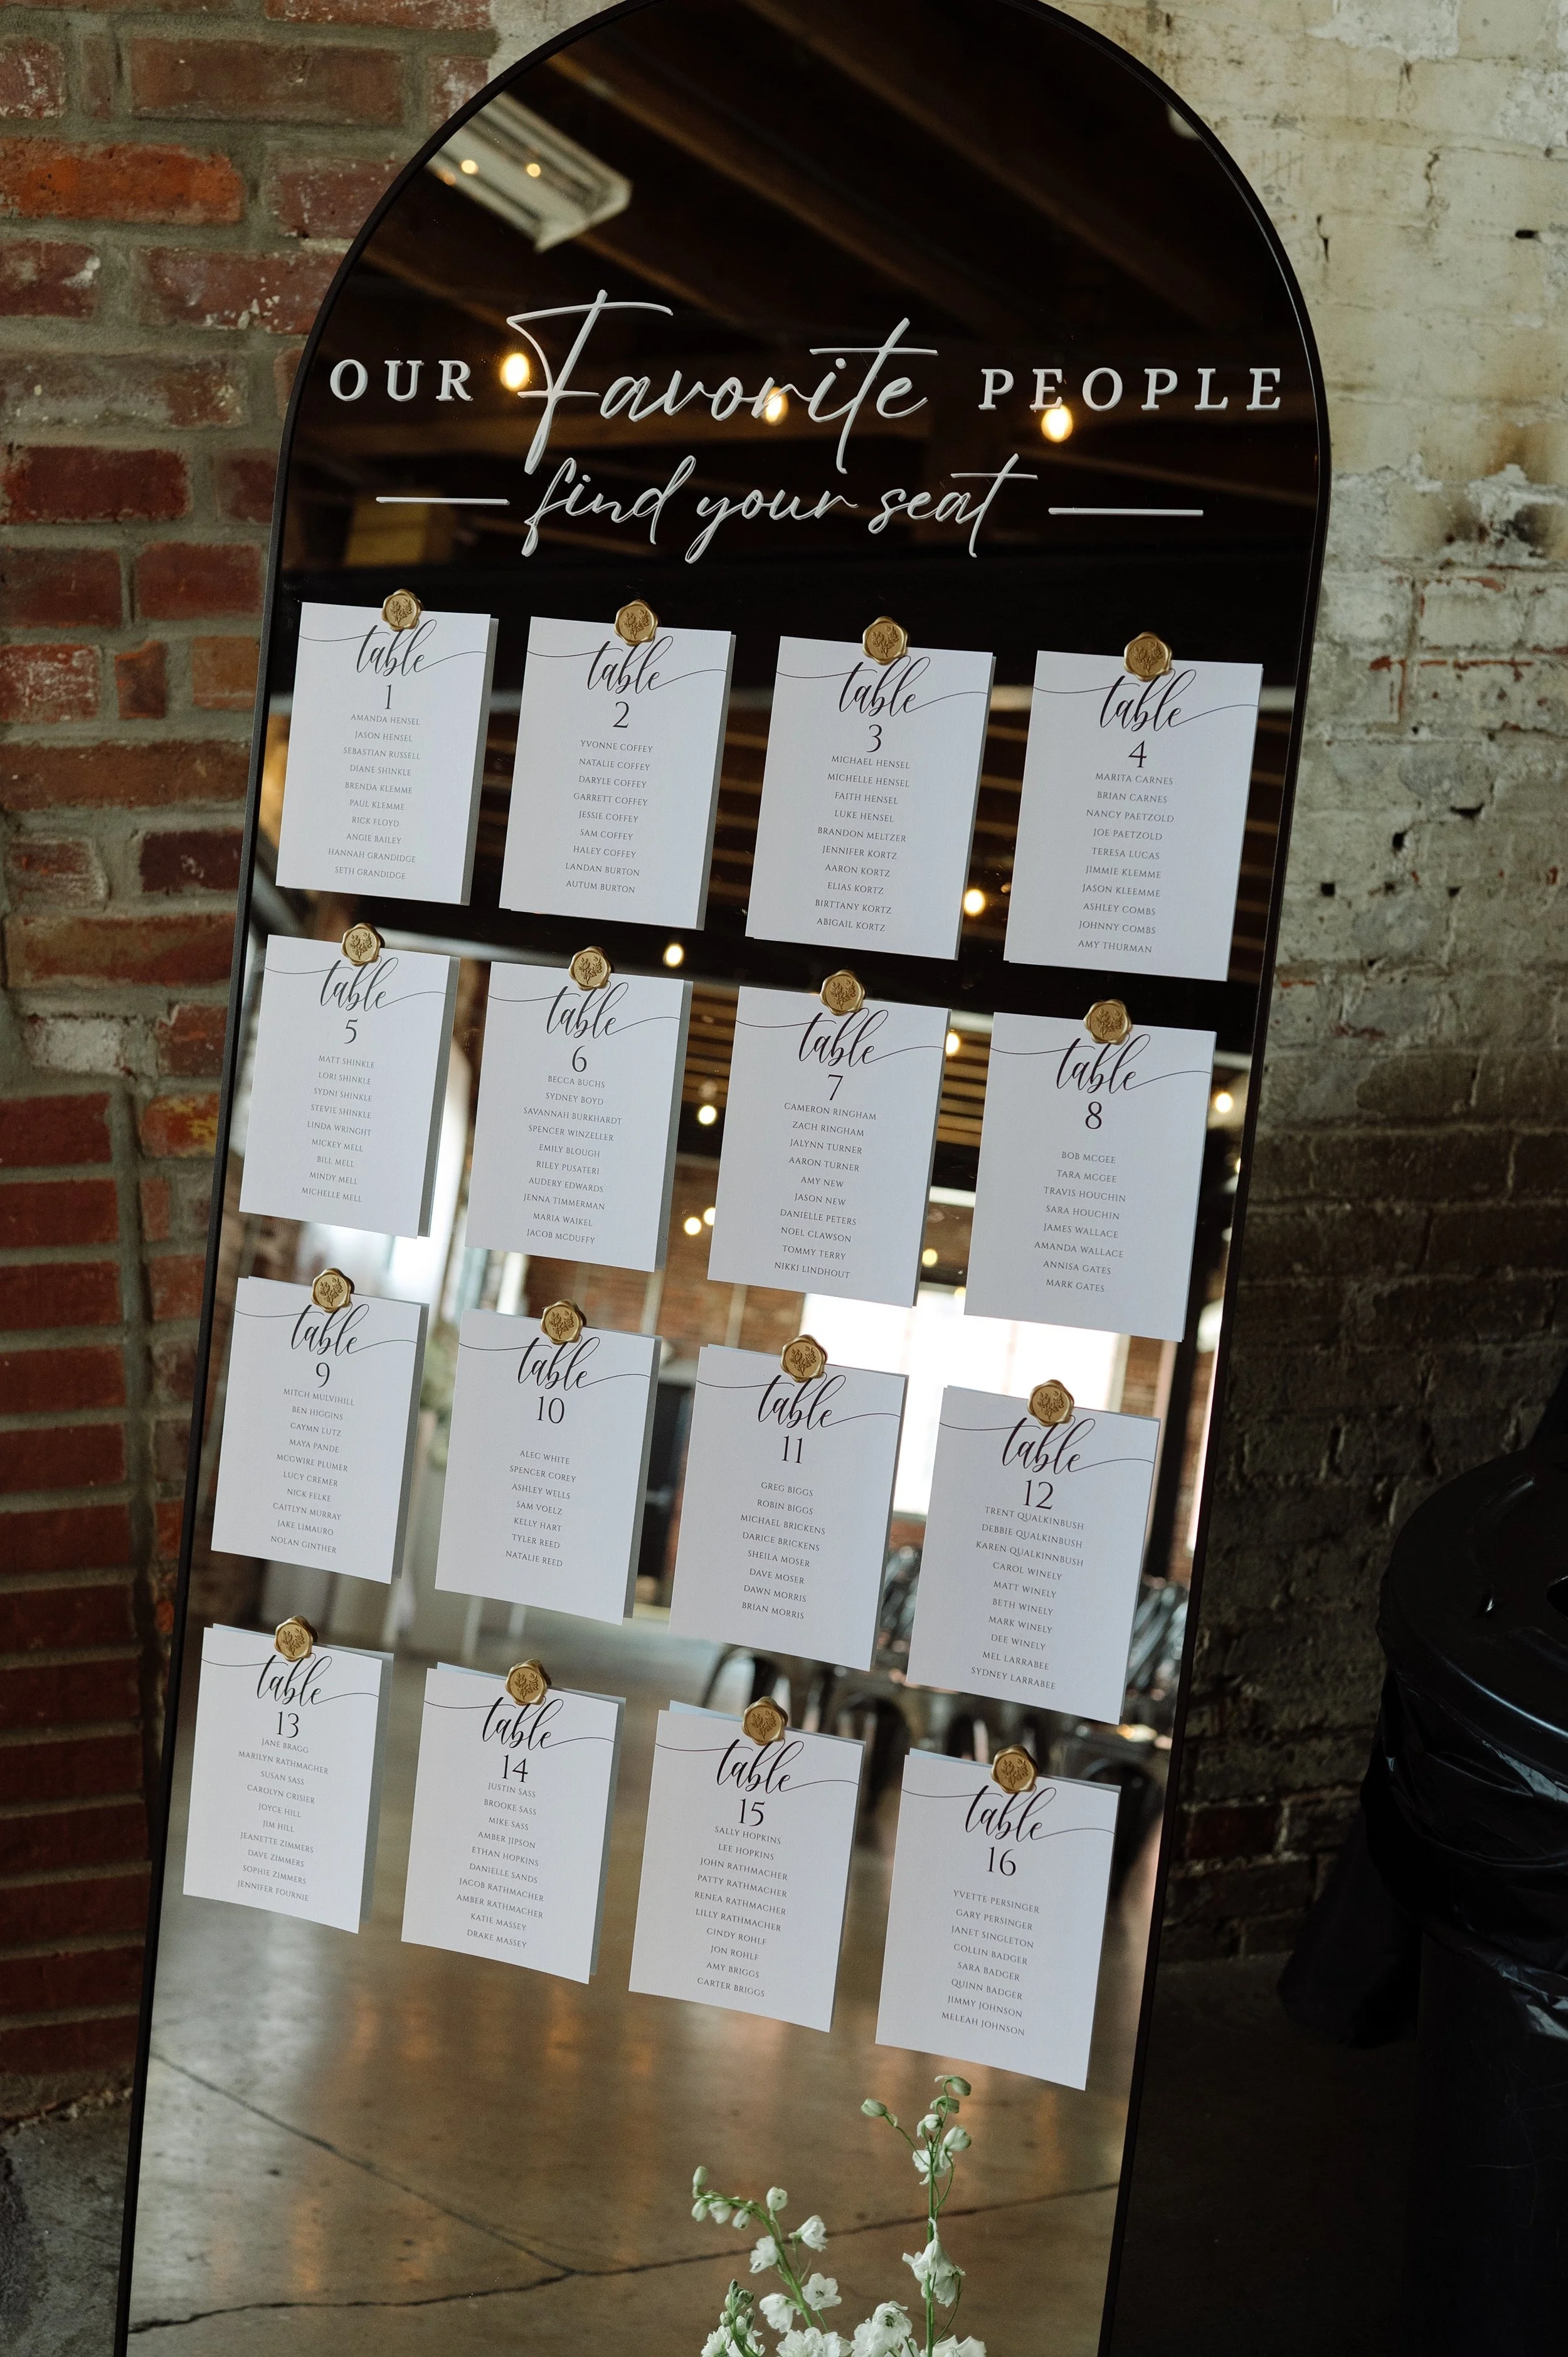 OUR Favorite PEOPLE
find your seat
table
1
AMANDA HENSEL
JASON HENSEL
SEBASTIAN RUSSELL
DIANE SHINKLE
BRENDA KLEMME
PAUL KLEMME
RICK FLOYD
ANGIE BAILEY
HANNAH GRANDIDGE
SETH GRANDIDGE
table
2
YVONNE COFFEY
NATALIE COFFEY
DARYLE COFFEY
GARRETT COFFEY
JESSIE COFFEY
SAM COFFEY
HALEY COFFEY
LANDAN BURTON
AUTUM BURTON
table
3
MICHAEL HENSEL
MICHELLE HENSEL
FAITH HENSEL
LUKE HENSEL
BRANDON MELTZER
JENNIFER KORTZ
AARON KORTZ
ELIAS KORTZ
BIRTTANY KORTZ
ABIGAIL KORTZ
table
4
MARITA CARNES
BRIAN CARNES
NANCY PAETZOLD
JOE PAETZOLD
TERESA LUCAS
JIMMIE KLEMME
JASON KLEEMME
ASHLEY COMBS
JOHNNY COMBS
AMY THURMAN
table
5
MATT SHINKLE
LORI SHINKLE
SYDNI SHINKLE
STEVIE SHINKLE
LINDA WRINGHT
MICKEY MELL
BILL MELL
MINDY MELL
MICHELLE MELL
table
6
BECCA BUCHS
SYDNEY BOYD
SAVANNAH BURKHARDT
SPENCER WINZELLER
EMILY BLOUGH
RILEY PUSATERI
AUDERY EDWARDS
JENNA TIMMERMAN
MARIA WAIKEL
JACOB MCDUFFY
table
7
CAMERON RINGHAM
ZACH RINGHAM
JALYNN TURNER
AARON TURNER
AMY NEW
JASON NEW
DANIELLE PETERS
NOEL CLAWSON
TOMMY TERRY
NIKKI LINDHOUT
table
8
BOB MCGEE
TARA MCGEE
TRAVIS HOUCHIN
SARA HOUCHIN
JAMES WALLACE
AMANDA WALLACE
ANNISA GATES
MARK GATES
table
9
MITCH MULVIHILL
BEN HIGGINS
CAYMN LUTZ
MAYA PANDE
MCGWIRE PLUMER
LUCY CREMER
NICK FELKE
CAITLYN MURRAY
JAKE LIMAURO
NOLAN GINTHER
table
10
ALEC WHITE
SPENCER COREY
ASHLEY WELLS
SAM VOELZ
KELLY HART
TYLER REED
NATALIE REED
table
11
GREG BIGGS
ROBIN BIGGS
MICHAEL BRICKENS
DARICE BRICKENS
SHEILA MOSER
DAVE MOSER
DAWN MORRIS
BRIAN MORRIS
table
12
TRENT QUALKINBUSH
DEBBIE QUALKINBUSH
KAREN QUALKINNBUSH
CAROL WINELY
MATT WINELY
BETH WINELY
MARK WINELY
DEE WINELY
MEL LARRABEE
SYDNEY LARRABEE
table
13
JANE BRAGG
MARILYN RATHMACHER
SUSAN SASS
CAROLYN CRISIER
JOYCE HILL
JIM HILL
JEANETTE ZIMMERS
DAVE ZIMMERS
SOPHIE ZIMMERS
JENNIFER FOURNIE
table
14
JUSTIN SASS
BROOKE SASS
MIKE SASS
AMBER JIPSON
ETHAN HOPKINS
DANIELLE SANDS
JACOB RATHMACHER
AMBER RATHMACHER
KATIE MASSEY
DRAKE MASSEY
table
15
SALLY HOPKINS
LEE HOPKINS
JOHN RATHMACHER
PATTY RATHMACHER
RENEA RATHMACHER
LILLY RATHMACHER
CINDY ROHLF
JON ROHLF
AMY BRIGGS
CARTER BRIGGS
table
16
YVETTE PERSINGER
GARY PERSINGER
JANET SINGLETON
COLLIN BADGER
SARA BADGER
QUINN BADGER
JIMMY JOHNSON
MELEAH JOHNSON